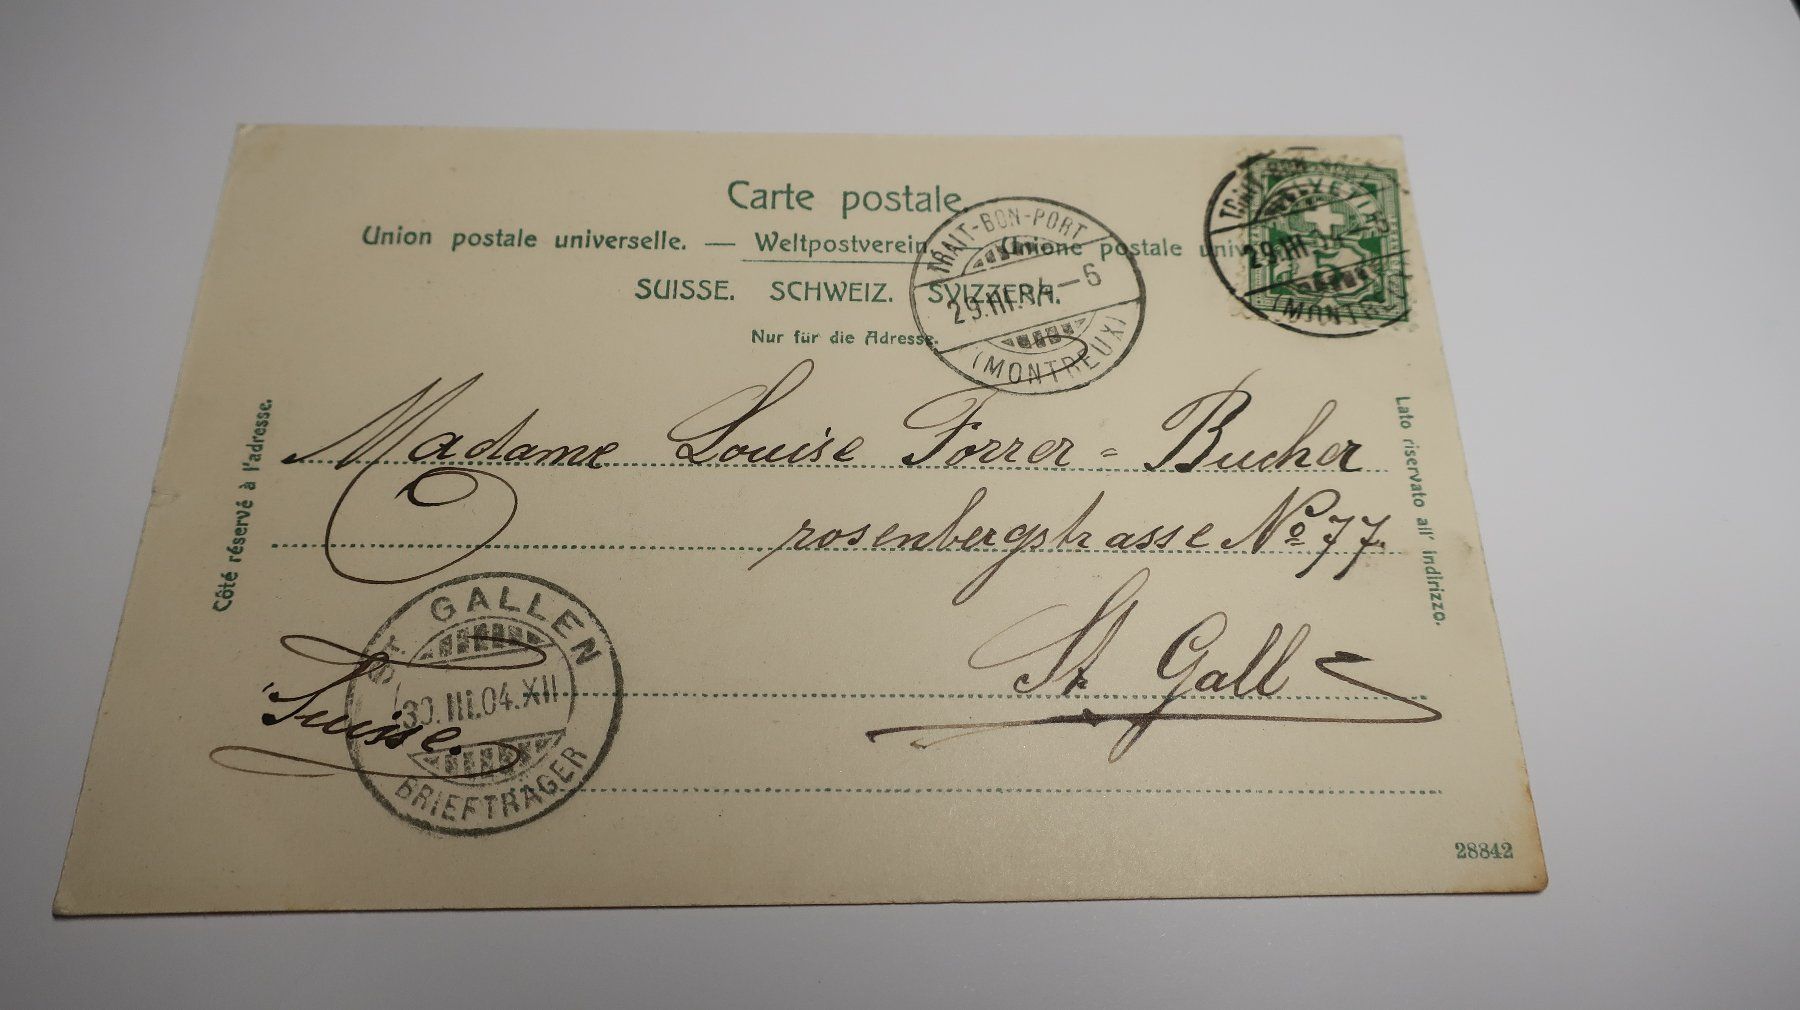 Carte postale.
Union postale universelle. — Weltpostverein. — Unione postale
SUISSE. SCHWEIZ. SVIZZERA.
Nur für die Adresse.
TRAIT-BON-PORT
29.III.04-6
(MONTREUX)
HELVETIA
5
29.III.04
Côté réservé à l'adresse.
Lato riservato all' indirizzo.
Madame Louise Forrer = Bucher
rosenbergstrasse No 77.
St Gall
Suisse.
ST. GALLEN
30.III.04.XII
BRIEFTRÄGER
28842